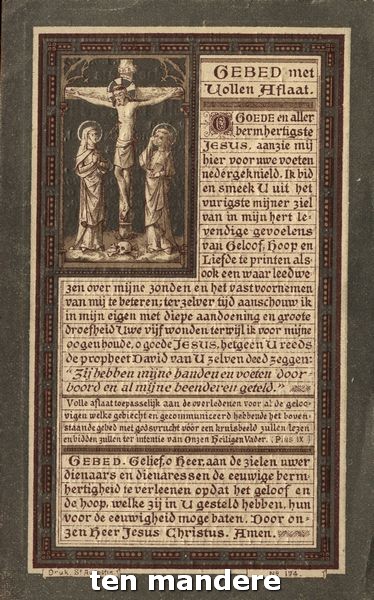 GEBED met
Vollen Aflaat.
O GOEDE en aller
bermhertigste
JESUS, aanzie mij
hier voor uwe voeten
nedergeknield. Ik bid
en smeek U uit het
vurigste mijner ziel
van in mijn hert le-
vendige gevoelens
van Geloof, Hoop en
Liefde te printen als
ook een waar leedwe-
zen over mijne zonden en het vast voornemen
van mij te beteren; terzelver tijd aanschouw ik
in mijn eigen met diepe aandoening en groote
droefheid Uwe vijf wonden terwijl ik voor mijne
oogen houde, o goede JESUS, hetgeen U reeds
de propheet David van U zelven deed zeggen:
"Zij hebben mijne handen en voeten door-
boord en al mijne beenderen geteld."
Volle aflaat toepasselijk aan de overledenen voor al de geloo-
vigen welke gebiecht en gecommuniceerd hebbende het boven-
staande gebed met godsvrucht vóór een kruisbeeld zullen lezen
en bidden zullen ter intentie van Onzen Heiligen Vader. (Pius IX)
GEBED. Gelief, o Heer, aan de zielen uwer
dienaars en dienaressen de eeuwige berm-
hertigheid te verleenen opdat het geloof en
de hoop, welke zij in U gesteld hebben, hun
voor de eeuwigheid moge baten. Door on-
zen Heer Jesus Christus. Amen.
Druk. St Augustin
No 174.
ten mandere